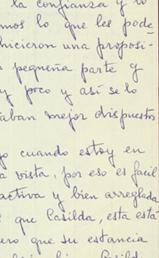 la confianza y lo
mos lo que les pode
hicieron una proposi-
pequeña parte y
y poco y así se lo
taban mejor dispuestos
go cuando estoy en
a vista, por eso es facil
activa y bien arreglada
que Casilda, esta está
ero que su estancia